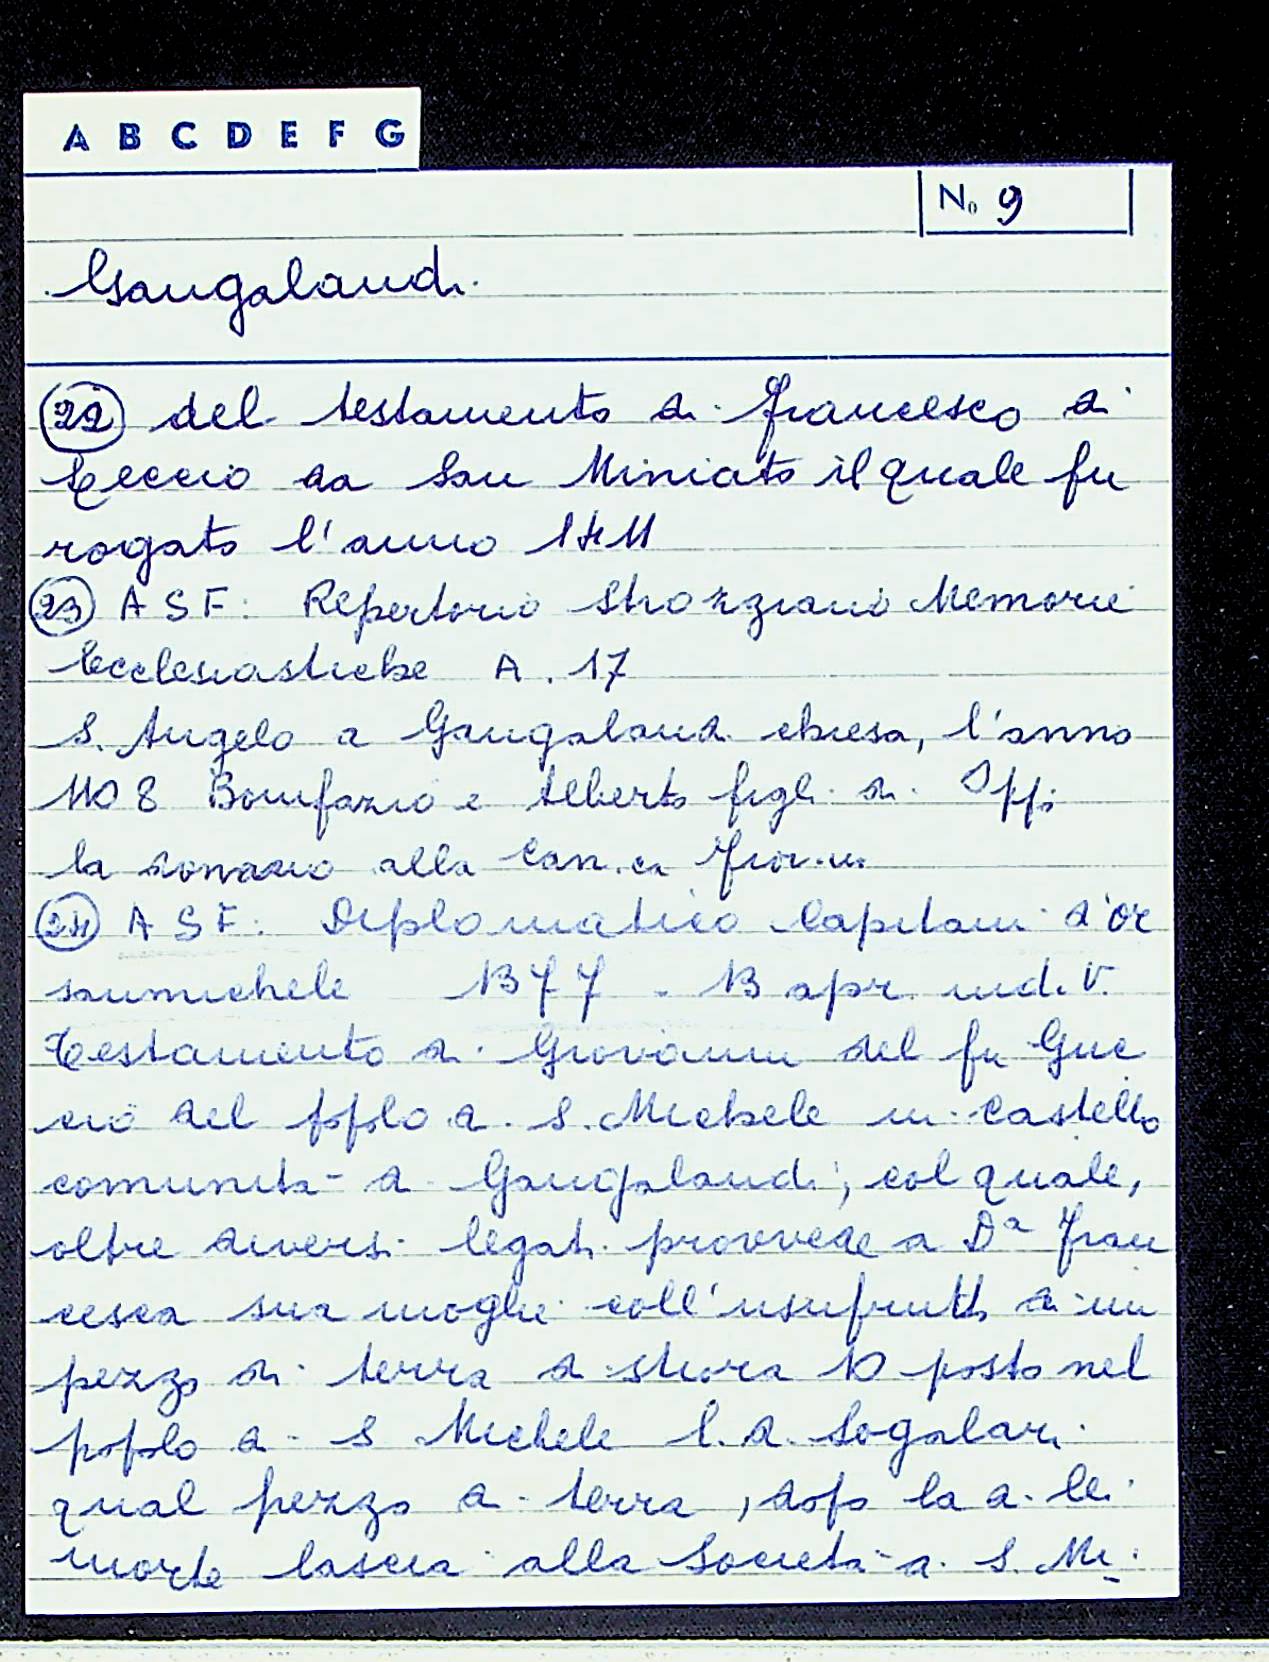 A B C D E F G
No 9
Gangalandi
22 del testamento di Francesco di
Ceccio da San Miniato il quale fu
rogato l'anno 1411
23 ASF. Repertorio Strozziano Memorie
Ecclesiastiche A. 17
S. Angelo a Gangalandi chiesa, l'anno
1108 Bonifazio e Alberto figli di
la donano alla
24 ASF. Diplomatico Capitani d'or
sanmichele 1377 - 13 apr. ind. V.
Testamento di Giovanni del fu Guc
cio del popolo di S. Michele in Castello
comunità di Gangalandi, col quale,
oltre diversi legati provvede a Dª Fran
cesca sua moglie coll'usufrutto di un
pezzo di terra di stiora 10 posto nel
popolo di S Michele l.d.
qual pezzo di terra, dopo la di lei
morte lascia alla Società di S. Mi